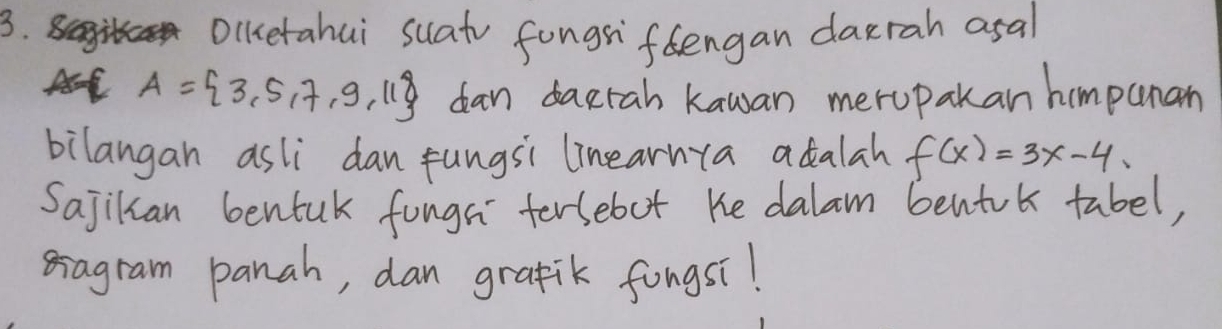 3. Diketahui suatu fungsi f dengan daerah asal
A = {3,5,7,9,11} dan daerah kawan merupakan himpunan
bilangan asli dan fungsi linearnya adalah f(x) = 3x-4.
Sajikan bentuk fungsi tersebut ke dalam bentuk tabel,
diagram panah, dan grafik fungsi!